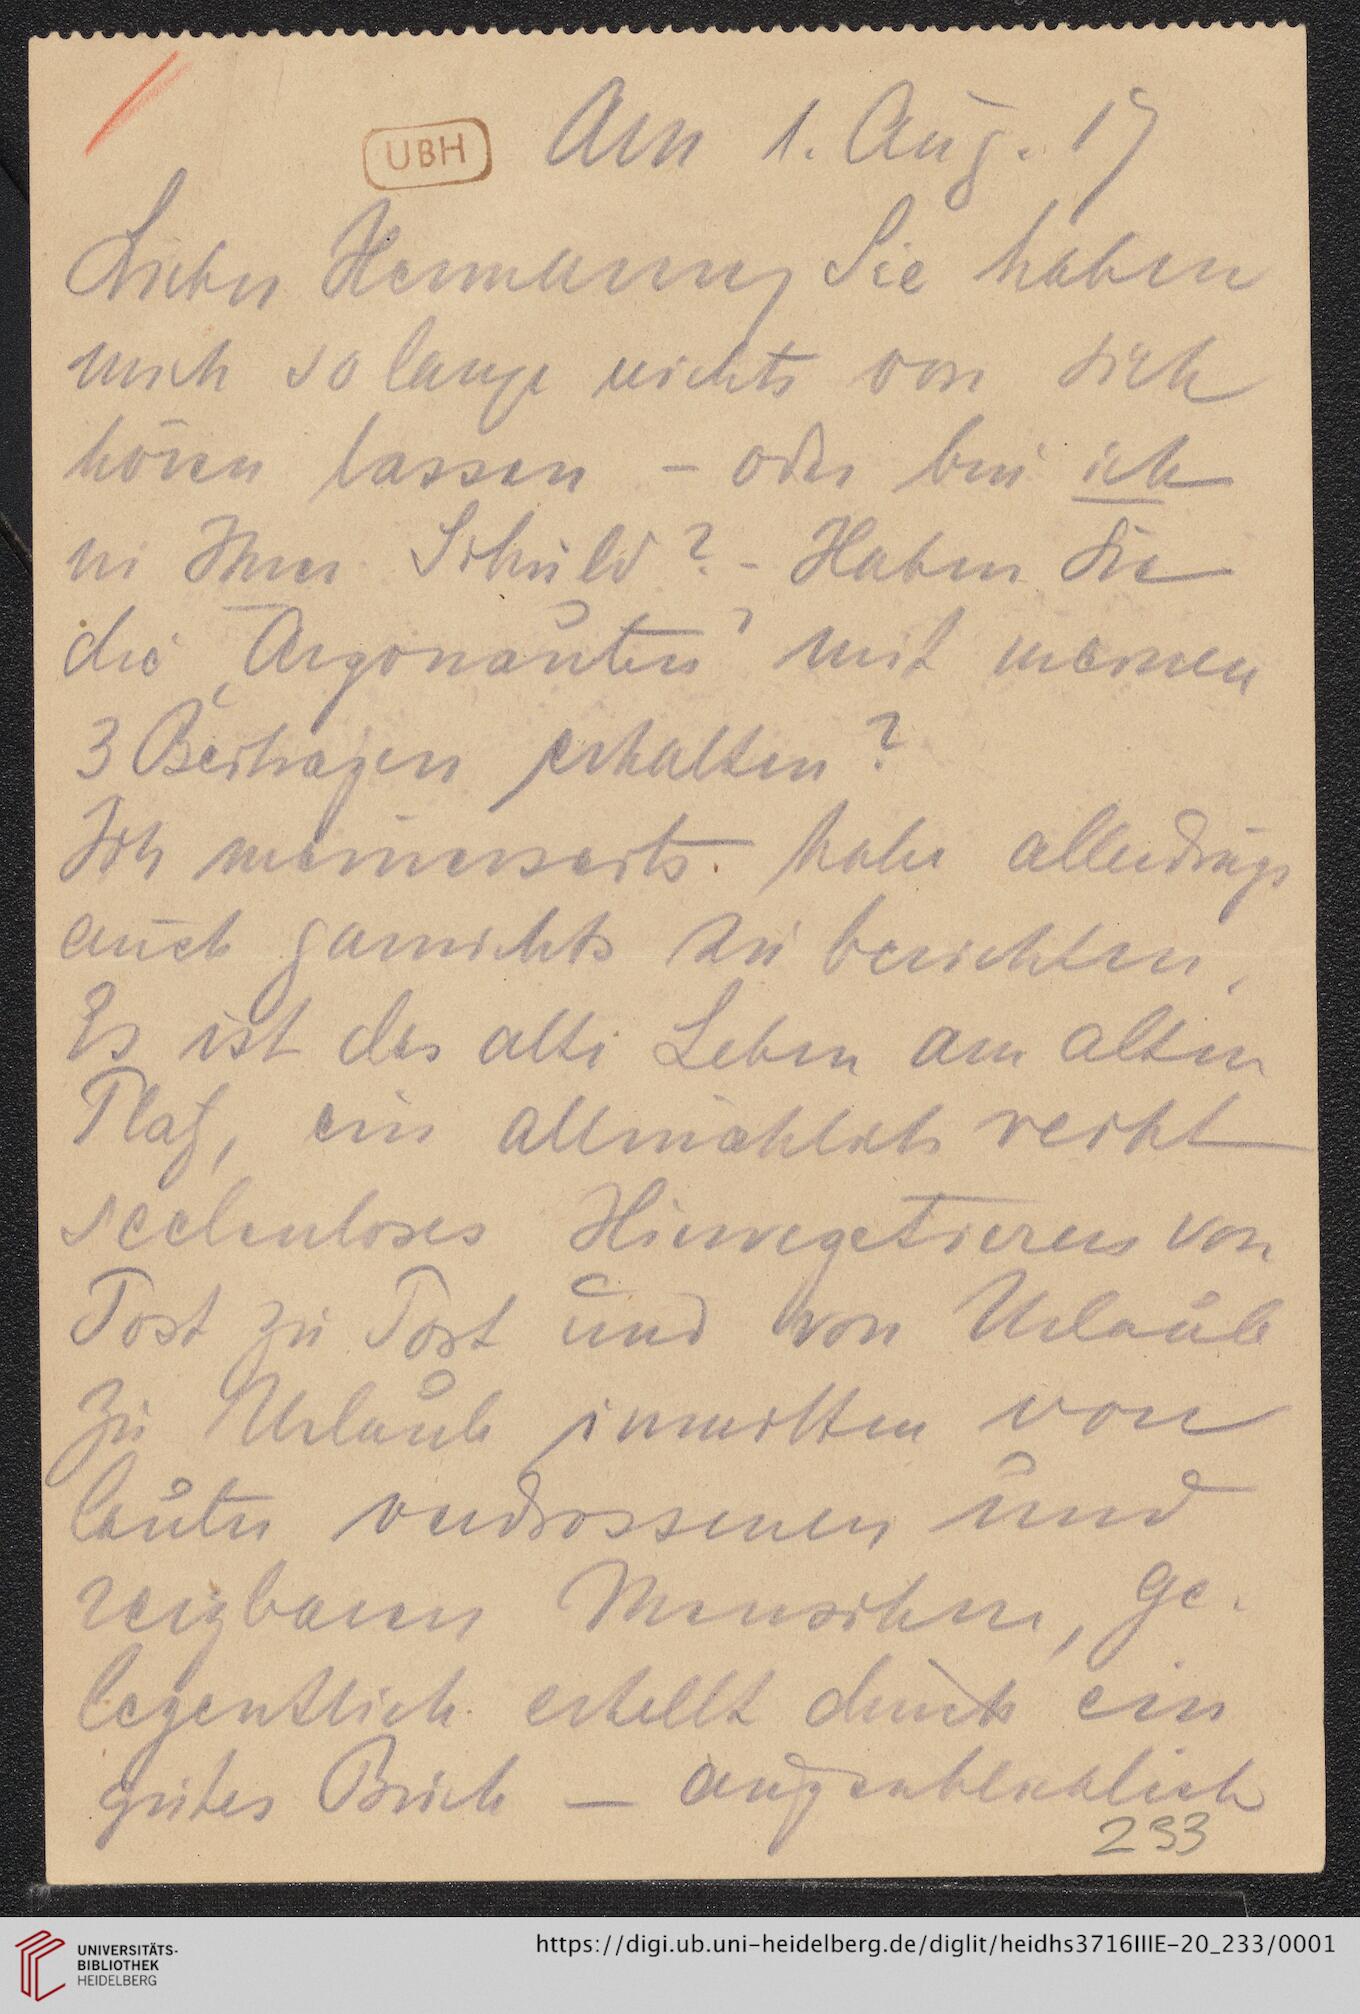 UBH
Am 1. Aug. 17
Lieber Hermann, Sie haben
mich so lange nichts von sich
hören lassen – oder bin ich
in Ihrer Schuld? – Haben Sie
die „Argonauten" mit meinen
3 Beitragen erhalten?
Ich meinerseits habe allerdings
auch garnichts zu berichten.
Es ist das alte Leben am alten
Platz, ein allmählich recht
seelenloses Hinvegetieren von
Post zu Post und von Urlaub
zu Urlaub inmitten von
lauter verdrossenen und
reizbaren Menschen, ge-
legentlich erhellt durch ein
gutes Buch – augenblicklich
233
UNIVERSITÄTS-
BIBLIOTHEK
HEIDELBERG
https://digi.ub.uni-heidelberg.de/diglit/heidhs3716IIIE-20_233/0001